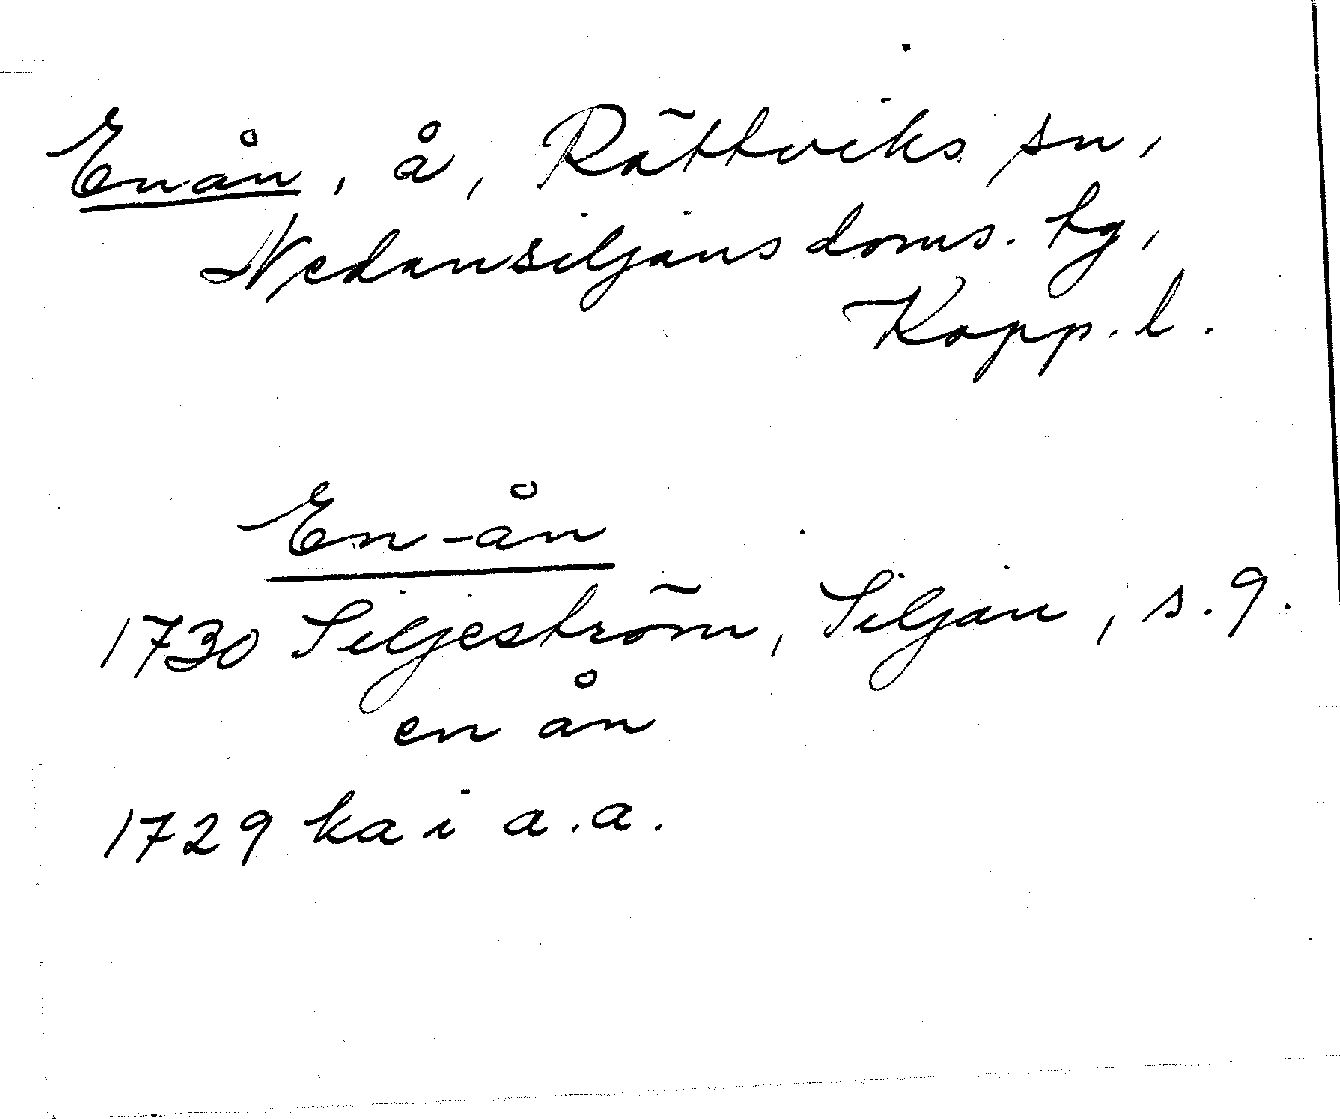 Enån, å, Rättviks sn,
Nedansiljans doms. tg,
Kopp. l.
En-ån
1730 Siljeström, Siljan, s. 9.
en ån
1729 ka i a.a.